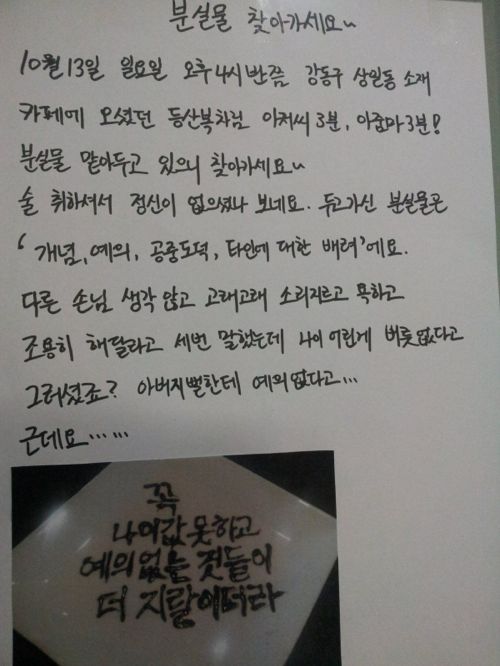 분실물 찾아가세요~
10월 13일 일요일 오후 4시반쯤 강동구 상일동 소재
카페에 오셨던 등산복차림 아저씨 3분, 아줌마 3분!
분실물 맡아두고 있으니 찾아가세요~
술 취하셔서 정신이 없으셨나 보네요. 두고가신 분실물은
'개념, 예의, 공중도덕, 타인에 대한 배려'에요.
다른 손님 생각 않고 고래고래 소리지르고 욕하고
조용히 해달라고 세번 말했는데 나이 어린게 버릇없다고
그러셨죠? 아버지뻘한테 예의없다고...
근데요......
꼭
나이값 못하고
예의없는 것들이
더 지랄이더라